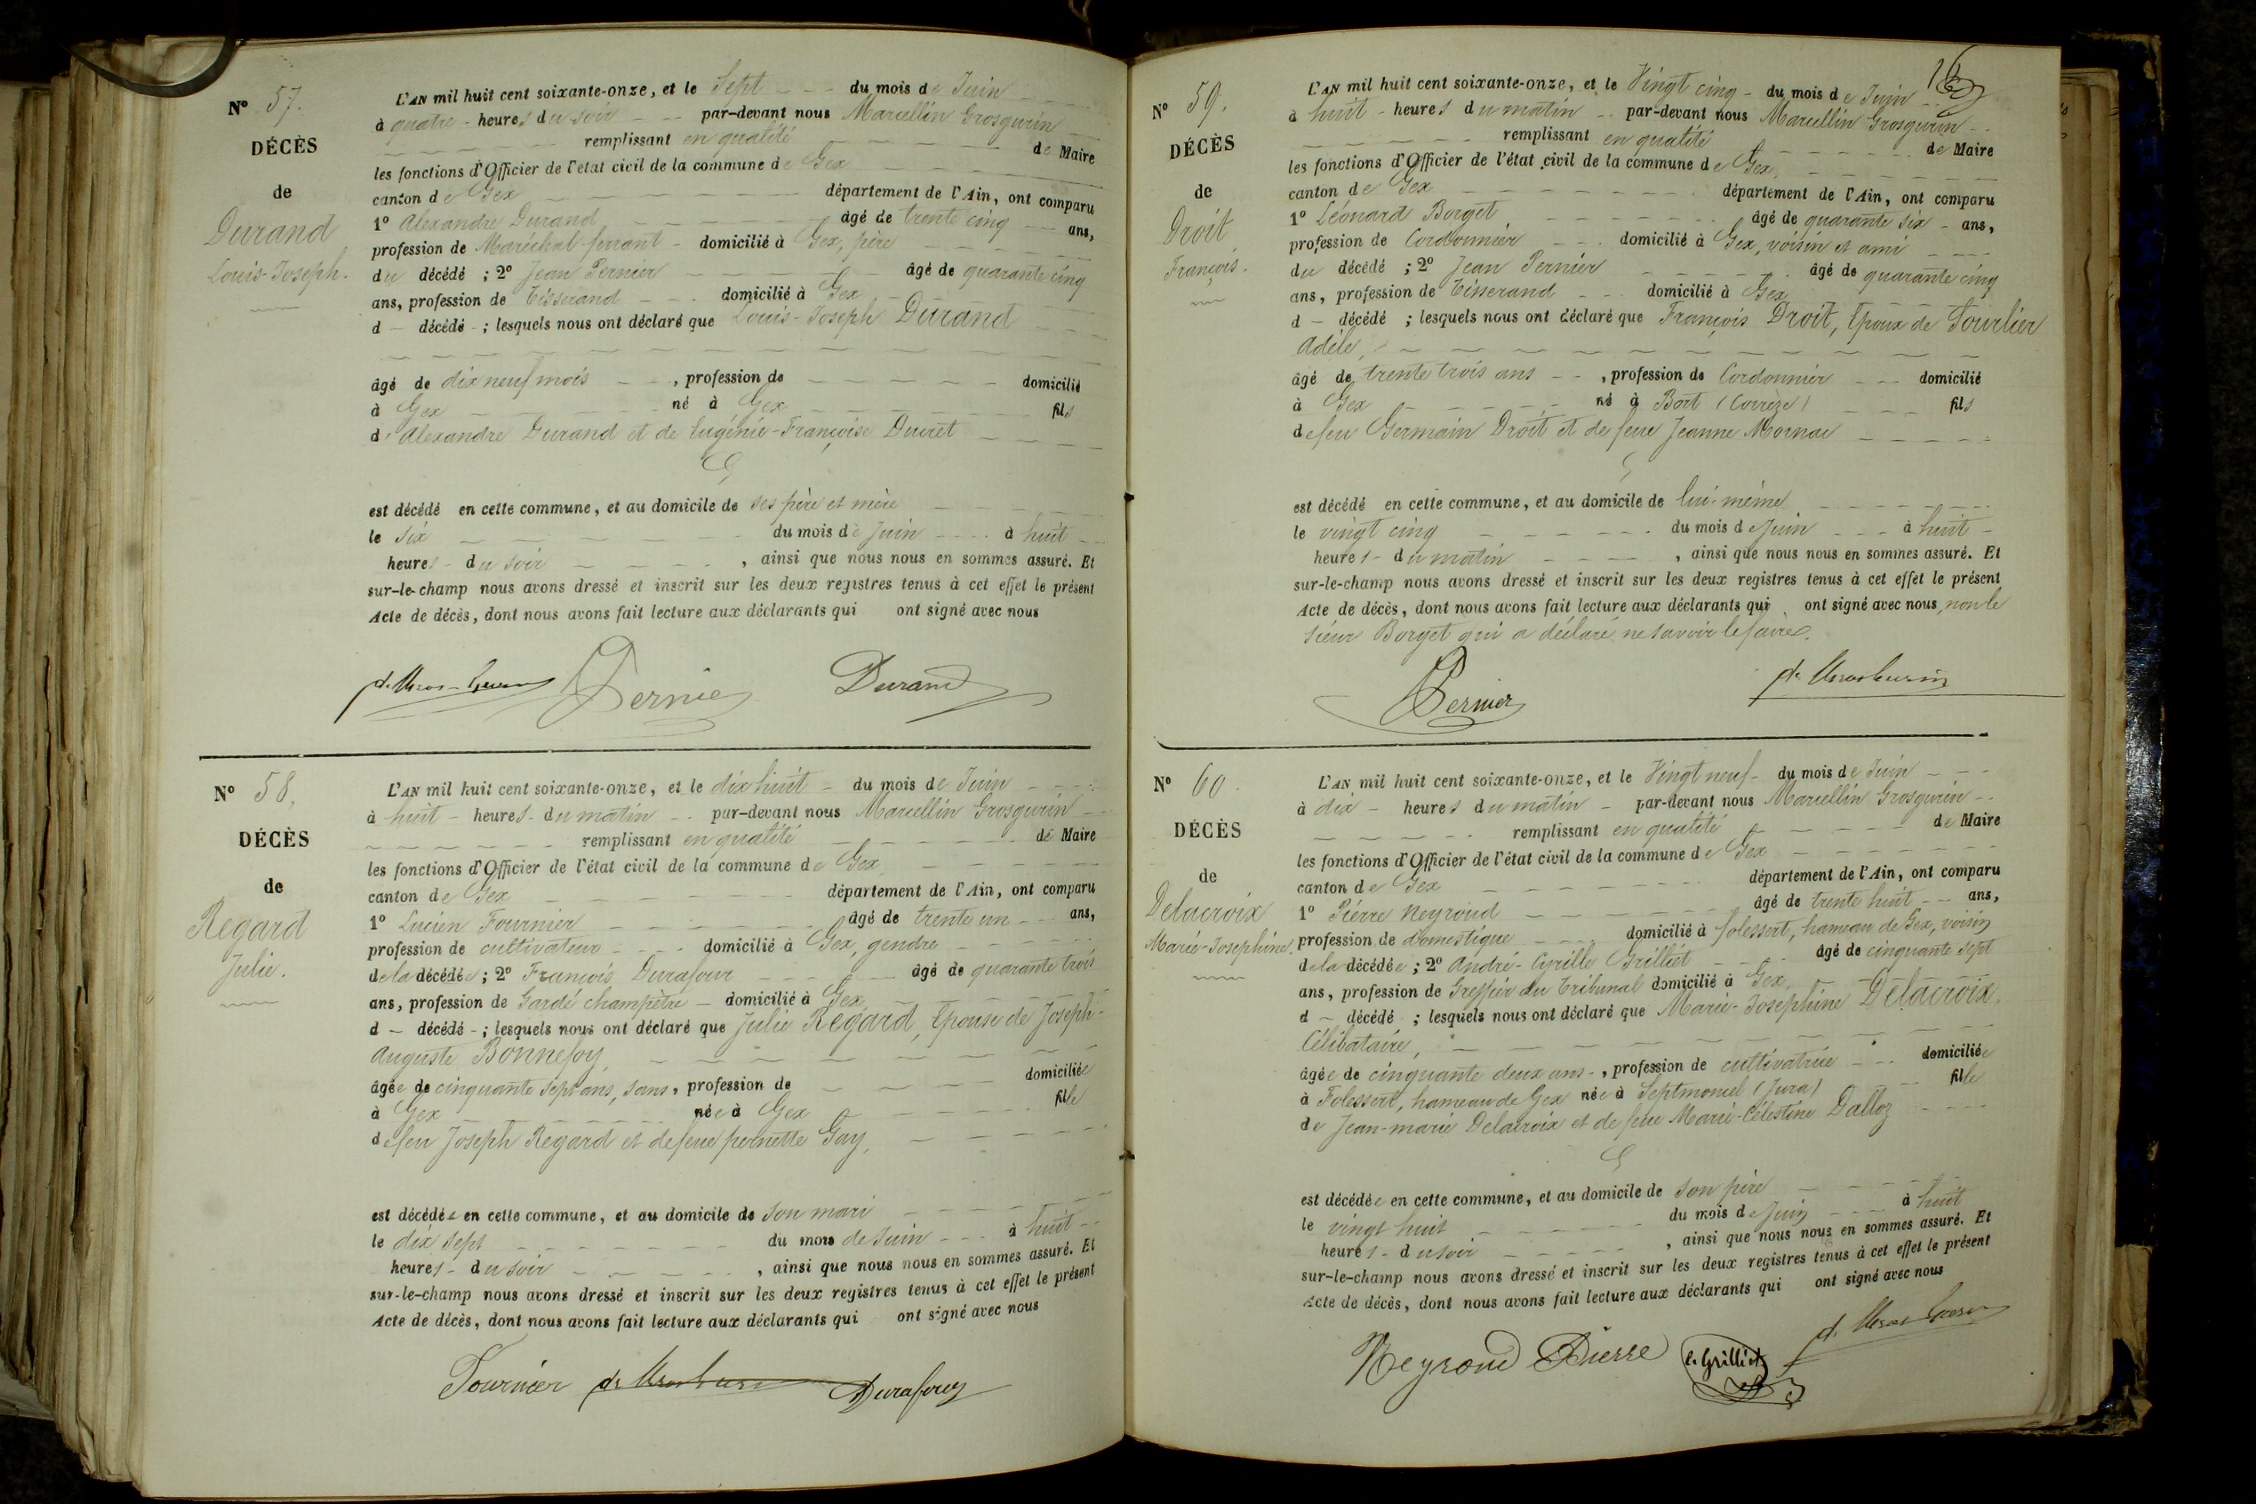 N° 57.
DÉCÈS
de
Durand
Louis-Joseph.
L'AN mil huit cent soixante-onze, et le Sept du mois de Juin
à quatre heures du soir par-devant nous Marcellin Grosgurin
remplissant en qualité de Maire
les fonctions d'Officier de l'état civil de la commune de Gex
canton de Gex département de l'Ain, ont comparu
1° Alexandre Durand âgé de trente cinq ans,
profession de Maréchal-ferrant domicilié à Gex, père
du décédé ; 2° Jean Pernier âgé de quarante cinq
ans, profession de Tisserand domicilié à Gex
d décédé ; lesquels nous ont déclaré que Louis-Joseph Durand
âgé de dix neuf mois , profession de domicilié
à Gex né à Gex fils
d' Alexandre Durand et de Eugénie-Françoise Ducret
est décédé en cette commune, et au domicile de ses père et mère
le six du mois de Juin à huit
heures du soir , ainsi que nous nous en sommes assuré. Et
sur-le-champ nous avons dressé et inscrit sur les deux registres tenus à cet effet le présent
Acte de décès, dont nous avons fait lecture aux déclarants qui ont signé avec nous
Pernier Durand
N° 58.
DÉCÈS
de
Regard
Julie.
L'AN mil huit cent soixante-onze, et le dix huit du mois de Juin
à huit heures du matin par-devant nous Marcellin Grosgurin
remplissant en qualité de Maire
les fonctions d'Officier de l'état civil de la commune de Gex
canton de Gex département de l'Ain, ont comparu
1° Lucien Fournier âgé de trente un ans,
profession de cultivateur domicilié à Gex, gendre
de la décédée ; 2° François Durafour âgé de quarante trois
ans, profession de Garde champêtre domicilié à Gex
d décédé ; lesquels nous ont déclaré que Julie Regard, Epouse de Joseph-
Auguste Bonnefoy,
âgée de cinquante sept ans, sans, profession de domiciliée
à Gex née à Gex fille
de feu Joseph Regard et de feue pernette Gay,
est décédée en cette commune, et au domicile de son mari
le dix sept du mois de Juin à huit
heures du soir , ainsi que nous nous en sommes assuré. Et
sur-le-champ nous avons dressé et inscrit sur les deux registres tenus à cet effet le présent
Acte de décès, dont nous avons fait lecture aux déclarants qui ont signé avec nous
Fournier Durafour
N° 59.
DÉCÈS
de
Droit
François.
L'AN mil huit cent soixante-onze, et le Vingt cinq du mois de Juin
à huit heures du matin par-devant nous Marcellin Grosgurin
remplissant en qualité de Maire
les fonctions d'Officier de l'état civil de la commune de Gex,
canton de Gex département de l'Ain, ont comparu
1° Léonard Borget âgé de quarante six ans,
profession de Cordonnier domicilié à Gex, voisin et ami
du décédé ; 2° Jean Pernier âgé de quarante cinq
ans, profession de Tisserand domicilié à Gex
d décédé ; lesquels nous ont déclaré que François Droit, Epoux de Tourlier
Adèle,
âgé de trente trois ans , profession de Cordonnier domicilié
à Gex né à Bort (Corrèze) fils
de feu Germain Droit et de feue Jeanne Mornac
est décédé en cette commune, et au domicile de lui-même
le vingt cinq du mois de Juin à huit
heures du matin , ainsi que nous nous en sommes assuré. Et
sur-le-champ nous avons dressé et inscrit sur les deux registres tenus à cet effet le présent
Acte de décès, dont nous avons fait lecture aux déclarants qui ont signé avec nous, non le
sieur Borget qui a déclaré ne savoir le faire.
Pernier
N° 60.
DÉCÈS
de
Delacroix
Marie-Josephine.
L'AN mil huit cent soixante-onze, et le Vingt neuf du mois de Juin
à dix heures du matin par-devant nous Marcellin Grosgurin
remplissant en qualité de Maire
les fonctions d'Officier de l'état civil de la commune de Gex
canton de Gex département de l'Ain, ont comparu
1° Pierre Neyroud âgé de trente huit ans,
profession de domestique domicilié à folessert, hameau de Gex, voisin
de la décédée ; 2° André-Cyrille Grilliet âgé de cinquante sept
ans, profession de Greffier du Tribunal domicilié à Gex,
d décédé ; lesquels nous ont déclaré que Marie-Josephine Delacroix,
Célibataire,
âgée de cinquante deux ans , profession de cultivatrice domiciliée
à Folessert, hameau de Gex née à Septmoncel (Jura) fille
de Jean-marie Delacroix et de feue Marie-Célestine Dalloz
est décédée en cette commune, et au domicile de son père
le vingt huit du mois de Juin à huit
heures du soir , ainsi que nous nous en sommes assuré. Et
sur-le-champ nous avons dressé et inscrit sur les deux registres tenus à cet effet le présent
Acte de décès, dont nous avons fait lecture aux déclarants qui ont signé avec nous
Neyroud Pierre C. Grilliet